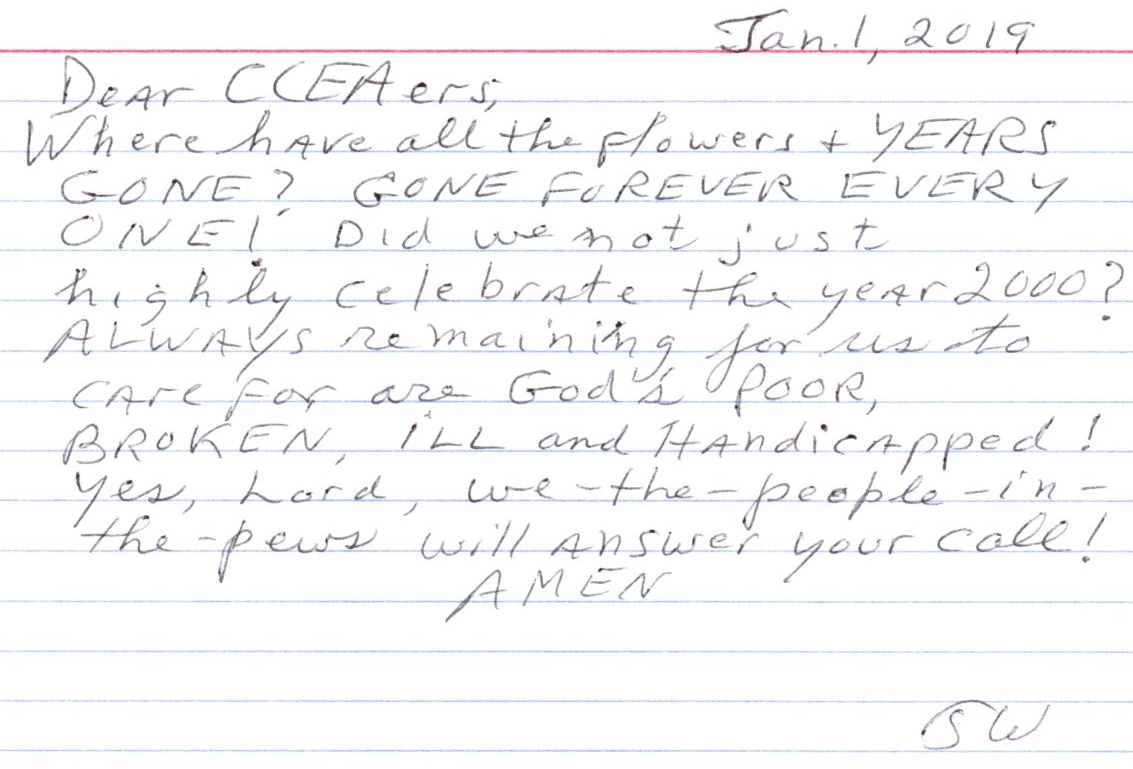 Jan. 1, 2019
Dear CCEAers,
Where have all the flowers + YEARS
GONE? GONE FOREVER EVERY
ONE! Did we not just
highly celebrate the year 2000?
ALWAYS remaining for us to
care for are God's POOR,
BROKEN, ILL and HANdicapped!
Yes, Lord, we-the-people-in-
the-pews will answer your call!
AMEN
SW